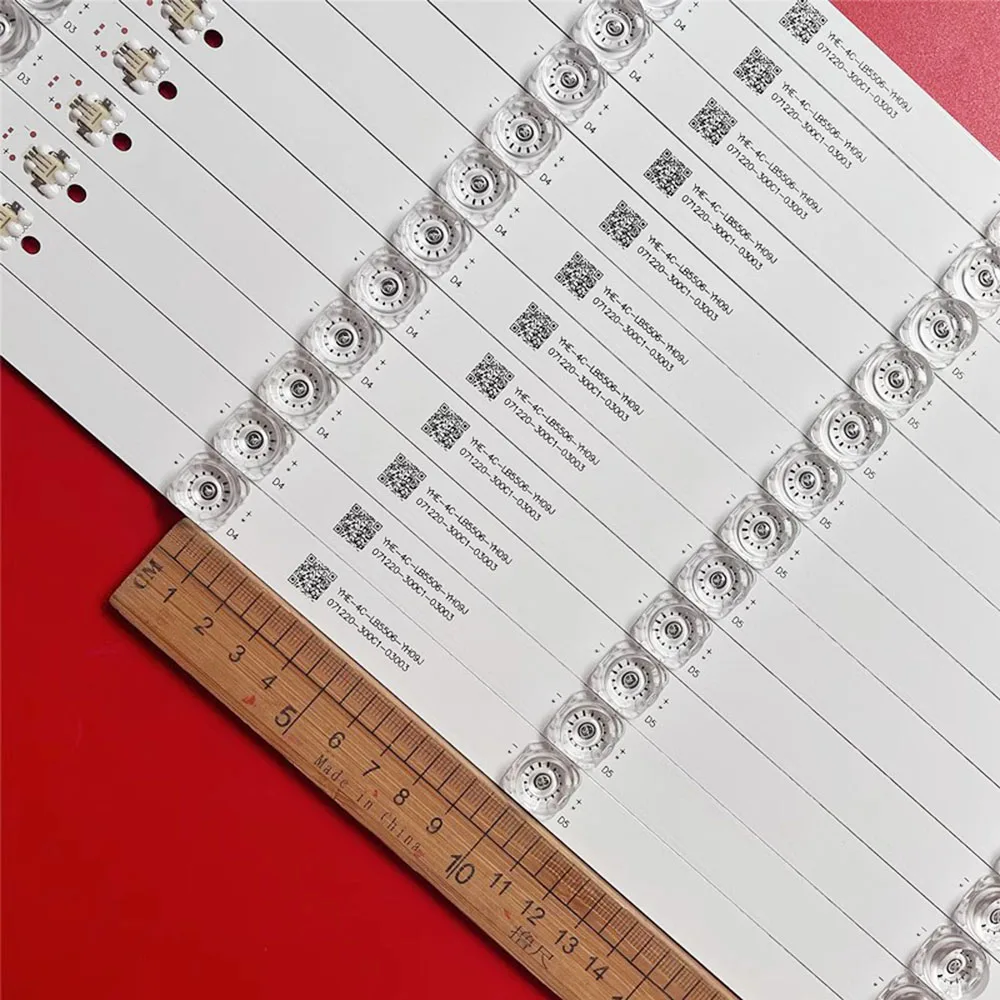 D3
D3
D4
D4
D4
D4
D4
D4
D4
D4
D4
D4
D4
YHE-4C-LB5506-YH09J
071220-300C1-03003
YHE-4C-LB5506-YH09J
071220-300C1-03003
YHE-4C-LB5506-YH09J
071220-300C1-03003
YHE-4C-LB5506-YH09J
071220-300C1-03003
YHE-4C-LB5506-YH09J
071220-300C1-03003
YHE-4C-LB5506-YH09J
071220-300C1-03003
YHE-4C-LB5506-YH09J
071220-300C1-03003
YHE-4C-LB5506-YH09J
071220-300C1-03003
YHE-4C-LB5506-YH09J
071220-300C1-03003
YHE-4C-LB5506-YH09J
071220-300C1-03003
YHE-4C-LB5506-YH09J
071220-300C1-03003
YHE-4C-LB5506-YH09J
071220-300C1-03003
D5
D5
D5
D5
D5
D5
D5
D5
D5
D5
CM
1 2 3 4 5 6 7 8 9 10 11 12 13 14
Made in China